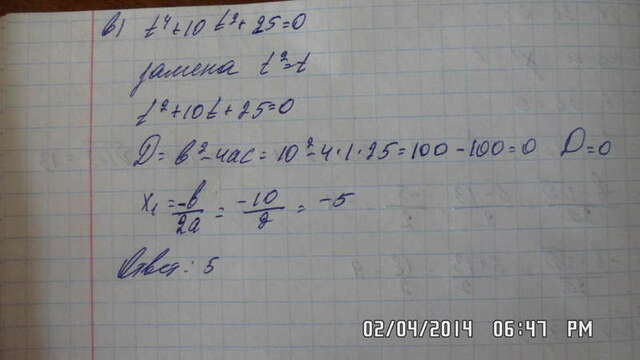 в) t⁴+10t²+25=0
замена t²=t
t²+10t+25=0
D=в²-4ас=10²-4·1·25=100-100=0 D=0
x₁=-в/2а=-10/2=-5
Ответ: 5
02/04/2014 06:47 PM